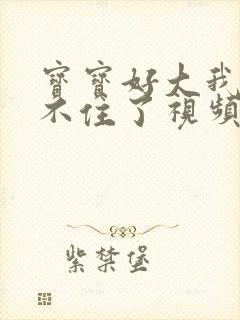 寶寶好大我
不住了視頻
紫禁堡